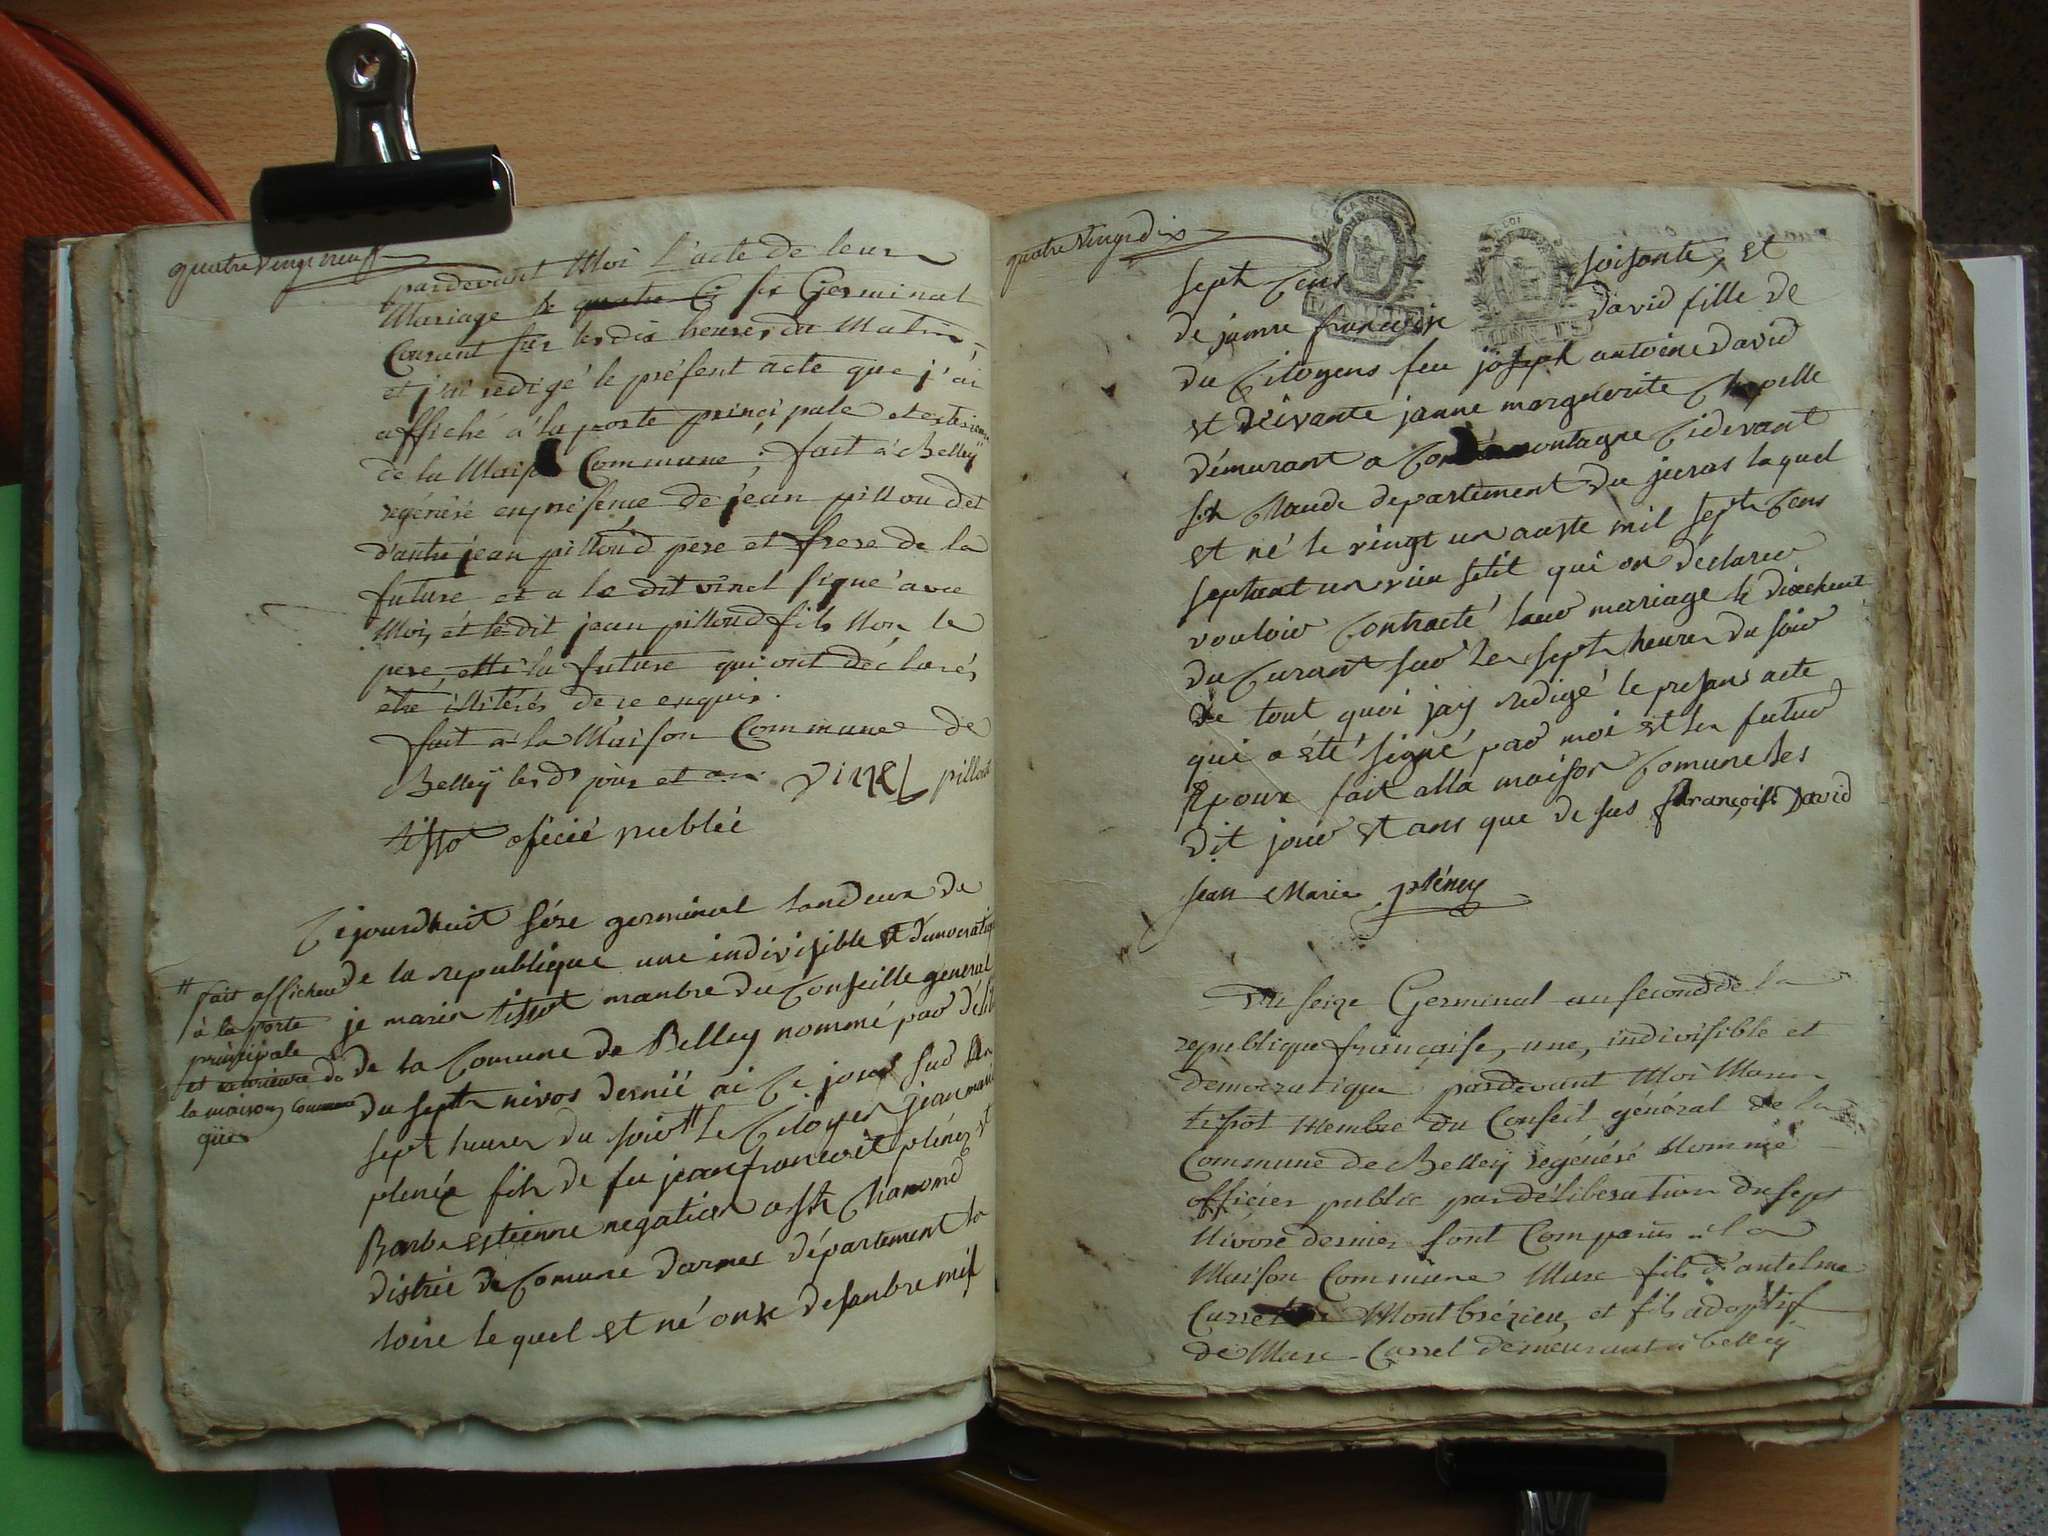 quatre vingt neuf
pardevant Moi l'acte de leur
Mariage le quatre Ci six Germinal
Courant sur les dix heures du Matin
et j'ai redigé le présent acte que j'ai
affiché à la porte principale et exterieure
de la Maison Commune, fait à Belleÿ
régénéré en présence de jean pilloud et
d'autre jean pilloud pere et frere de la
future et a le dit vinel signé avec
Moi, et le dit jean pilloud fils Non le
pere, la future qui ont déclarés
être illitérés de ce enquis.
fait à la Maison Commune de
Belleÿ les ds jour et an. vinel pilloud
tissot oficié publéc
Cejourdhuit séze germinal landeux de
de la republique une indivisible et democratique
je marin tissot manbre du Conseille general
de la Comune de Belley nommé par délib
du sept nivos dernié ai Ce jour sur les
sept heures du soir # le Citoyen jean marie
plenéz fils de fu jean francoit plénez et
Barbe estienne negatien a st Chamond
distric de Comune darmes département la
loire le quel est né onze desanbre mil
# fait afficher
à la porte
principale
et exterieure de
la maison Commune
que
quatre vingt dix
sept Cens soisante, et
de janne francoise david fille de
du Citoyens feu joseph antoine david
et deivante janne marguerite Chapelle
démurant a Condémontagne Cidevant
st Claude departement du juras laquel
est né le vingt un auste mil sept Cens
septant un vieu stil qui on déclarer
vouloir Contracté leur mariage le dixehuit
du Curant sur les sept heures du soir
de tout quoi jay redigé le presans acte
qui a été signé par moi et les futur
Epoux fait alla maison Comune les
dit jour et ans que de sus françoise David
Jean Marie pléney
Du seize Germinal an second de la
republique française, une, indivisible et
democratique pardevant Moi Marin
tissot Membre du Conseil général de la
Commune de Belleÿ régénéré Nommé
officier public par déliberation du sept
Nivose dernier sont Comparus à la
Maison Commune Marc fils d'antelme
Curret Montbrézieu, et fils adoptif
de Marc Carrel demeurant à belleÿ